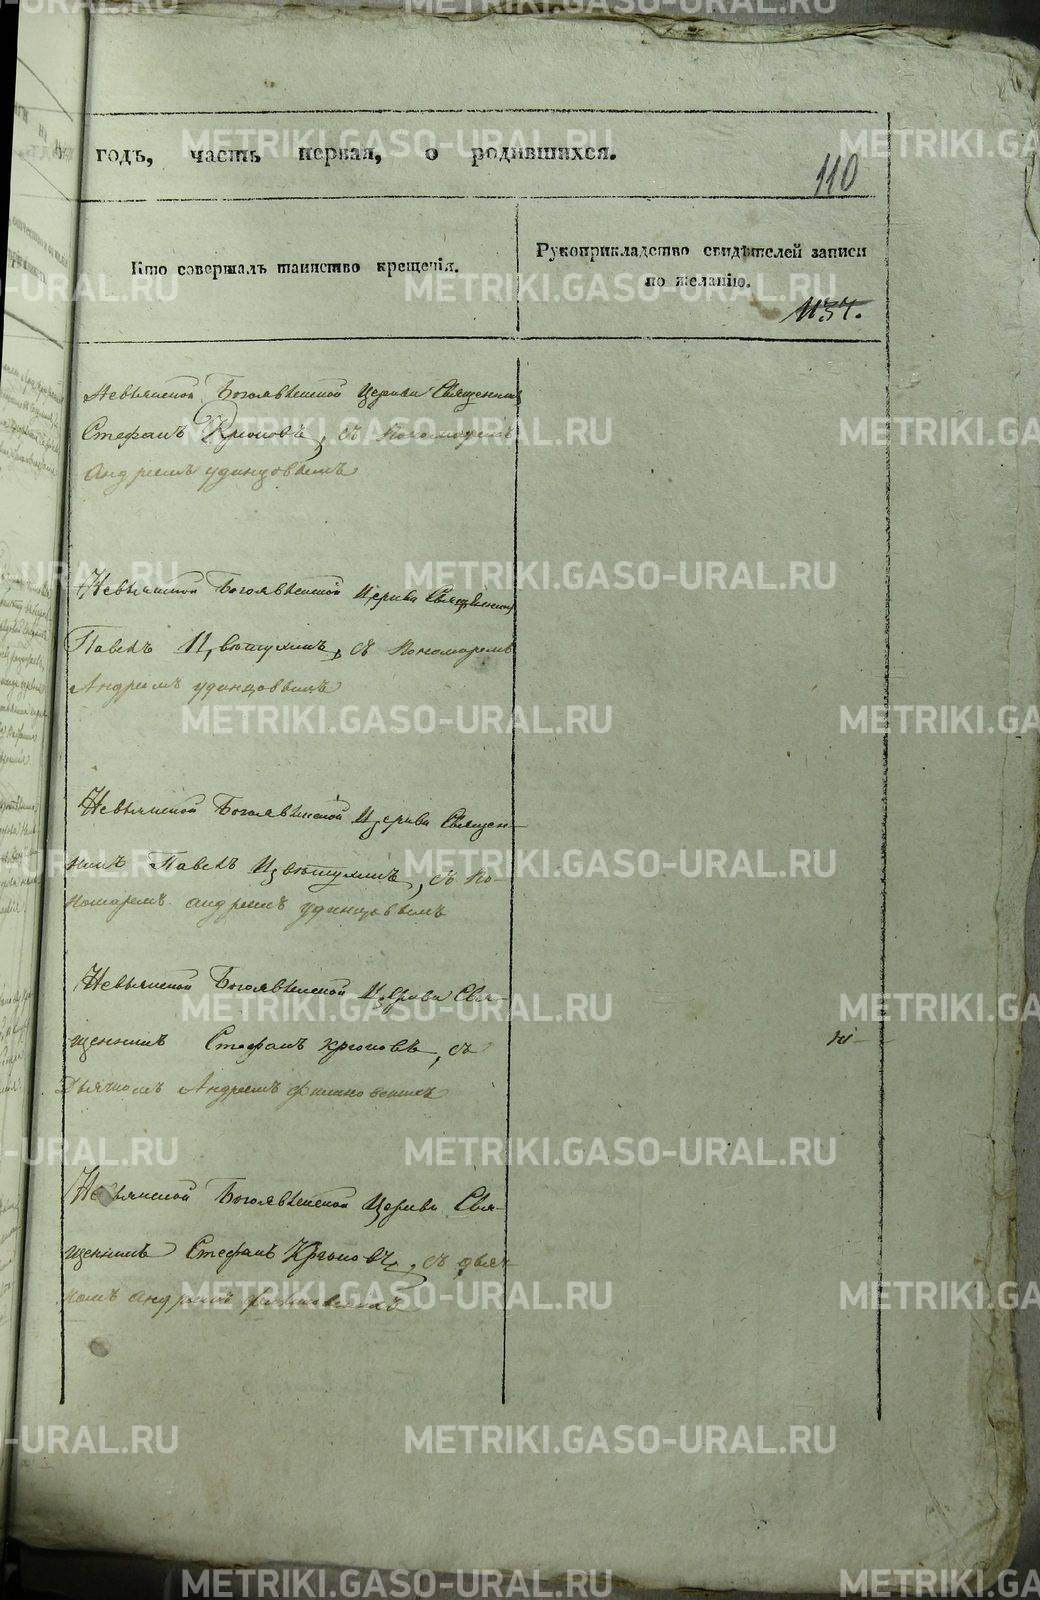 годъ, часть первая, о родившихся.
110
Кто совершалъ таинство крещенія.
Рукоприкладство свидѣтелей записи
по желанію.
1137.
Невьянской Богоявленской Церкви Священникъ
Стефанъ Крюковъ, съ Пономаремъ
Андреемъ Удинцовымъ
Невьянской Богоявленской Церкви Священникъ
Павелъ Цвѣтухинъ, съ Пономаремъ
Андреемъ Удинцовымъ
Невьянской Богоявленской Церкви Священ-
никъ Павелъ Цвѣтухинъ, съ По-
номаремъ Андреемъ Удинцовымъ
Невьянской Богоявленской Церкви Свя-
щенникъ Стефанъ Крюковъ, съ
Дьячкомъ Андреемъ
Невьянской Богоявленской Церкви Свя-
щенникъ Стефанъ Крюковъ, съ дьяч-
комъ Андреемъ
METRIKI.GASO-URAL.RU